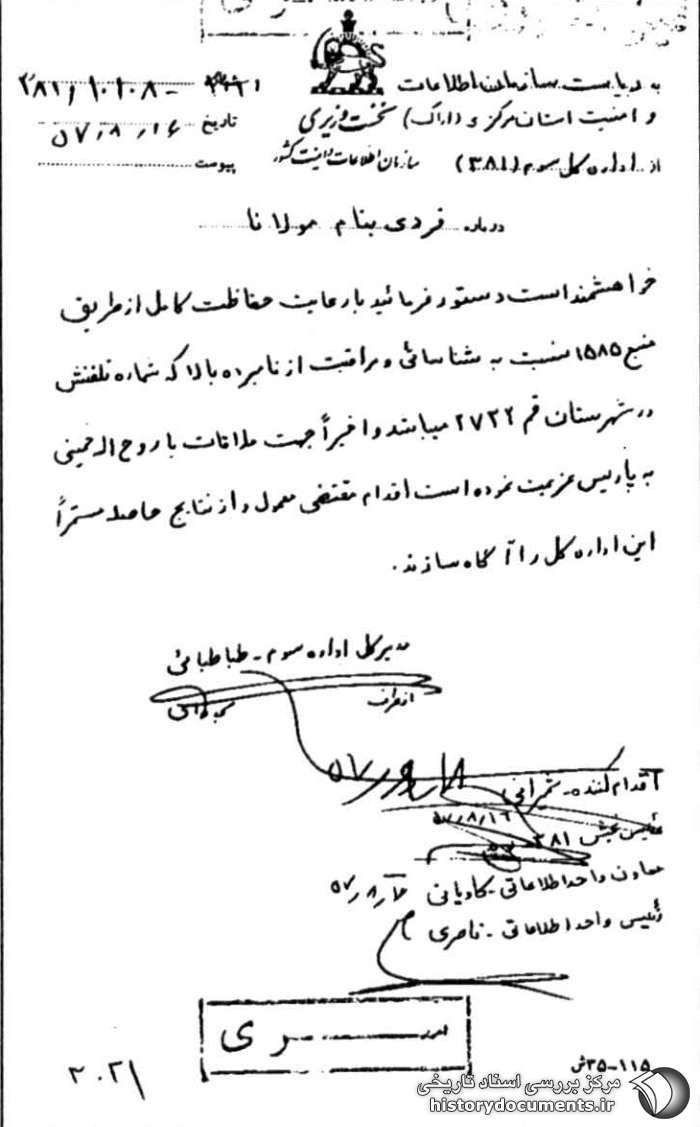 به ریاست سازمان اطلاعات
و امنیت استان مرکزی (اراک)
از اداره کل سوم (۳۸۱)
نخست وزیری
سازمان اطلاعات و امنیت کشور
شماره
تاریخ ۵۷/۸/۱۶
پیوست
درباره فردی بنام مولانا
خواهشمند است دستور فرمائید با رعایت حفاظت کامل از طریق
منبع ۱۵۸۵ نسبت به شناسائی و مراقبت از نامبرده بالا که شماره تلفنش
در شهرستان قم ۲۷۳۲ میباشد و اخیراً جهت ملاقات با روح اله خمینی
به پاریس عزیمت نموده است اقدام مقتضی معمول و از نتایج حاصله مستمراً
این اداره کل را آگاه سازند.
مدیر کل اداره سوم - طباطبائی
از طرف
اقدام کننده - شمرانی
رئیس بخش ۳۸۱
۵۷/۸/۱۶
معاون واحد اطلاعاتی - کاویانی
رئیس واحد اطلاعاتی - ناصری
سری
۲۰۲۱
۱۱۵-۳۵ش
مرکز بررسی اسناد تاریخی
historydocuments.ir